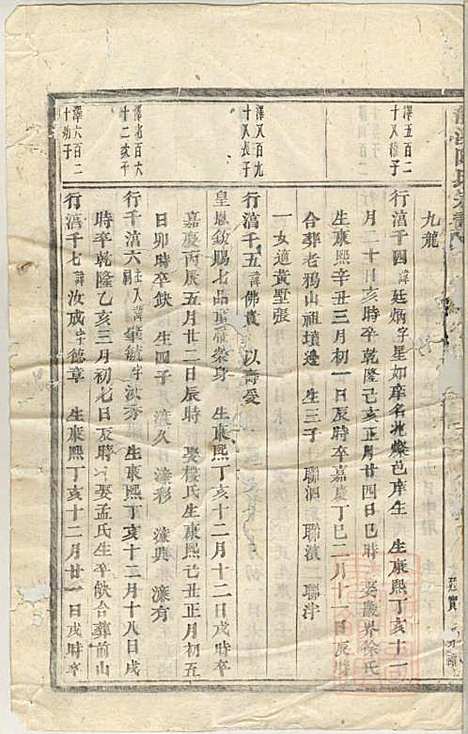 九龍
澤五百二
十又
子
行濇千四諱廷炳字星如庠名光燦邑庠生 生康熙丁亥十一
月二十日亥時卒乾隆己亥正月廿四日巳時 娶嚴界徐氏
生康熙辛丑三月初一日辰時卒嘉慶丁巳二月十一日辰時
合葬老鴉山祖墳邊 生三子 聯泗 聯濱 聯津
一女適黃墅張
澤又百九
十又長子
行濇千五諱佛貴 以壽受
皇恩欽賜七品頂戴榮身 生康熙丁亥十二月十二日戌時卒
嘉慶丙辰五月廿二日辰時 娶樓氏生康熙己丑正月初五
日卯時卒缺 生四子 濂久 濂彩 濂興 濂有
澤 百六
十二次子
行千濇六 諱肇毓字汝秀 生康熙丁亥十二月十八日戌
時卒乾隆乙亥三月初七日辰時 娶孟氏生卒缺合葬前山
澤六百二
十幼子
行濇千七諱汝成字德章 生康熙丁亥十二月廿一日戌時卒